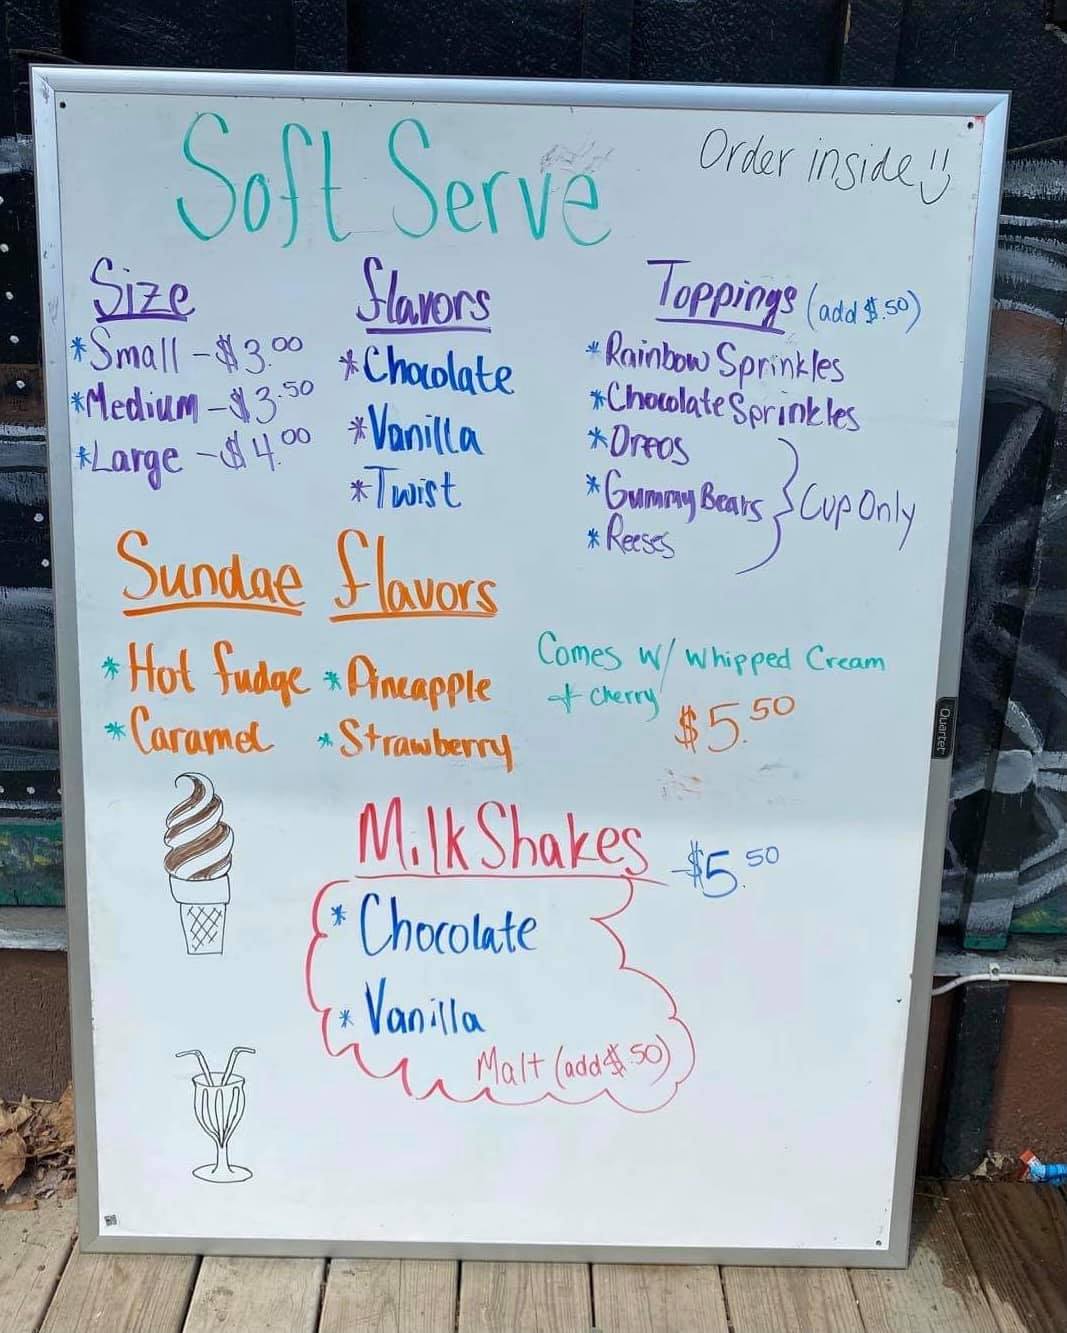 Soft Serve
Order inside!!
Size
*Small - $3.00
*Medium - $3.50
*Large - $4.00
flavors
*Chocolate
*Vanilla
*Twist
Toppings (add $.50)
*Rainbow Sprinkles
*Chocolate Sprinkles
*Oreos
*Gummy Bears
*Reeses
} Cup Only
Sundae flavors
*Hot fudge *Pineapple
*Caramel *Strawberry
Comes w/ whipped Cream
+ cherry
$5.50
Milk Shakes - $5.50
*Chocolate
*Vanilla
Malt (add $.50)
Quartet